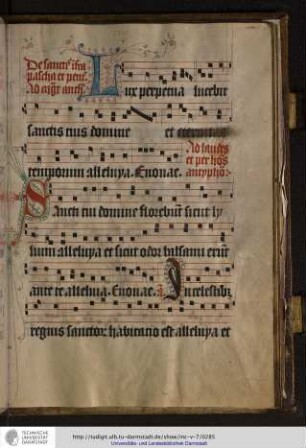 De sanctis infra
pascha et pent.
Ad magnificat anth.
Lux perpetua lucebit
sanctis tuis domine et eternitas
Ad laudes
et per horas
antypho:
temporum alleluya. Euouae.
Sancti tui domine florebunt sicut ly
lium alleluya et sicut odor balsami erunt
ante te alleluia. Euouae. In celestibus
regnis sanctorum habitacio est alleluya et
TECHNISCHE
UNIVERSITÄT
DARMSTADT
http://tudigit.ulb.tu-darmstadt.de/show/Hs-V-7/0285
Universitäts- und Landesbibliothek Darmstadt